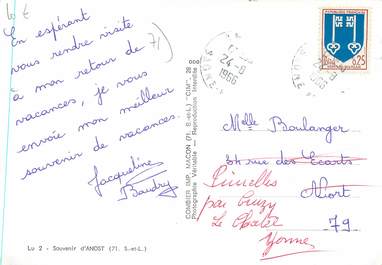 En espérant
vous rendre visite
à mon retour de
vacances, je vous
envoie mon meilleur
souvenir de vacances.
Jacqueline
Baudry
Lu 2 - Souvenir d'ANOST (71. S.-et-L.)
COMBIER IMP. MACON (71. S.-et-L.) "CIM"
Photographie Véritable - Reproduction Interdite
24-8
1966
REPUBLIQUE FRANÇAISE
0,25
Melle Boulanger
34 rue des Écarts
Niort
79
Pimelles
par Cruzy
Le Chatel
Yonne